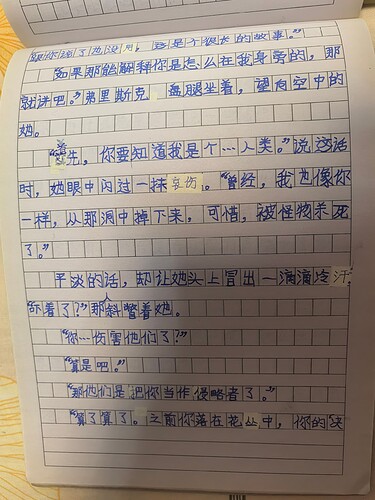 跟你说了也没用，这是个很长的故事。”
“如果那能解释你是怎么在我身旁的，那
就讲吧。”弗里斯克 盘腿坐着，望向空中的
她。
“首先，你要知道我是个…人类。”说这话
时，她眼中闪过一抹哀伤。“曾经，我也像你
一样，从那洞中掉下来，可惜，被怪物杀死
了。”
平淡的话，却让她头上冒出一滴滴冷汗。
“吓着了？”那人斜瞥着她。
“你…伤害他们了？”
“算是吧。”
“那他们是 把你当作 侵略者了。”
“算了算了。之前你落在花丛中，你的决